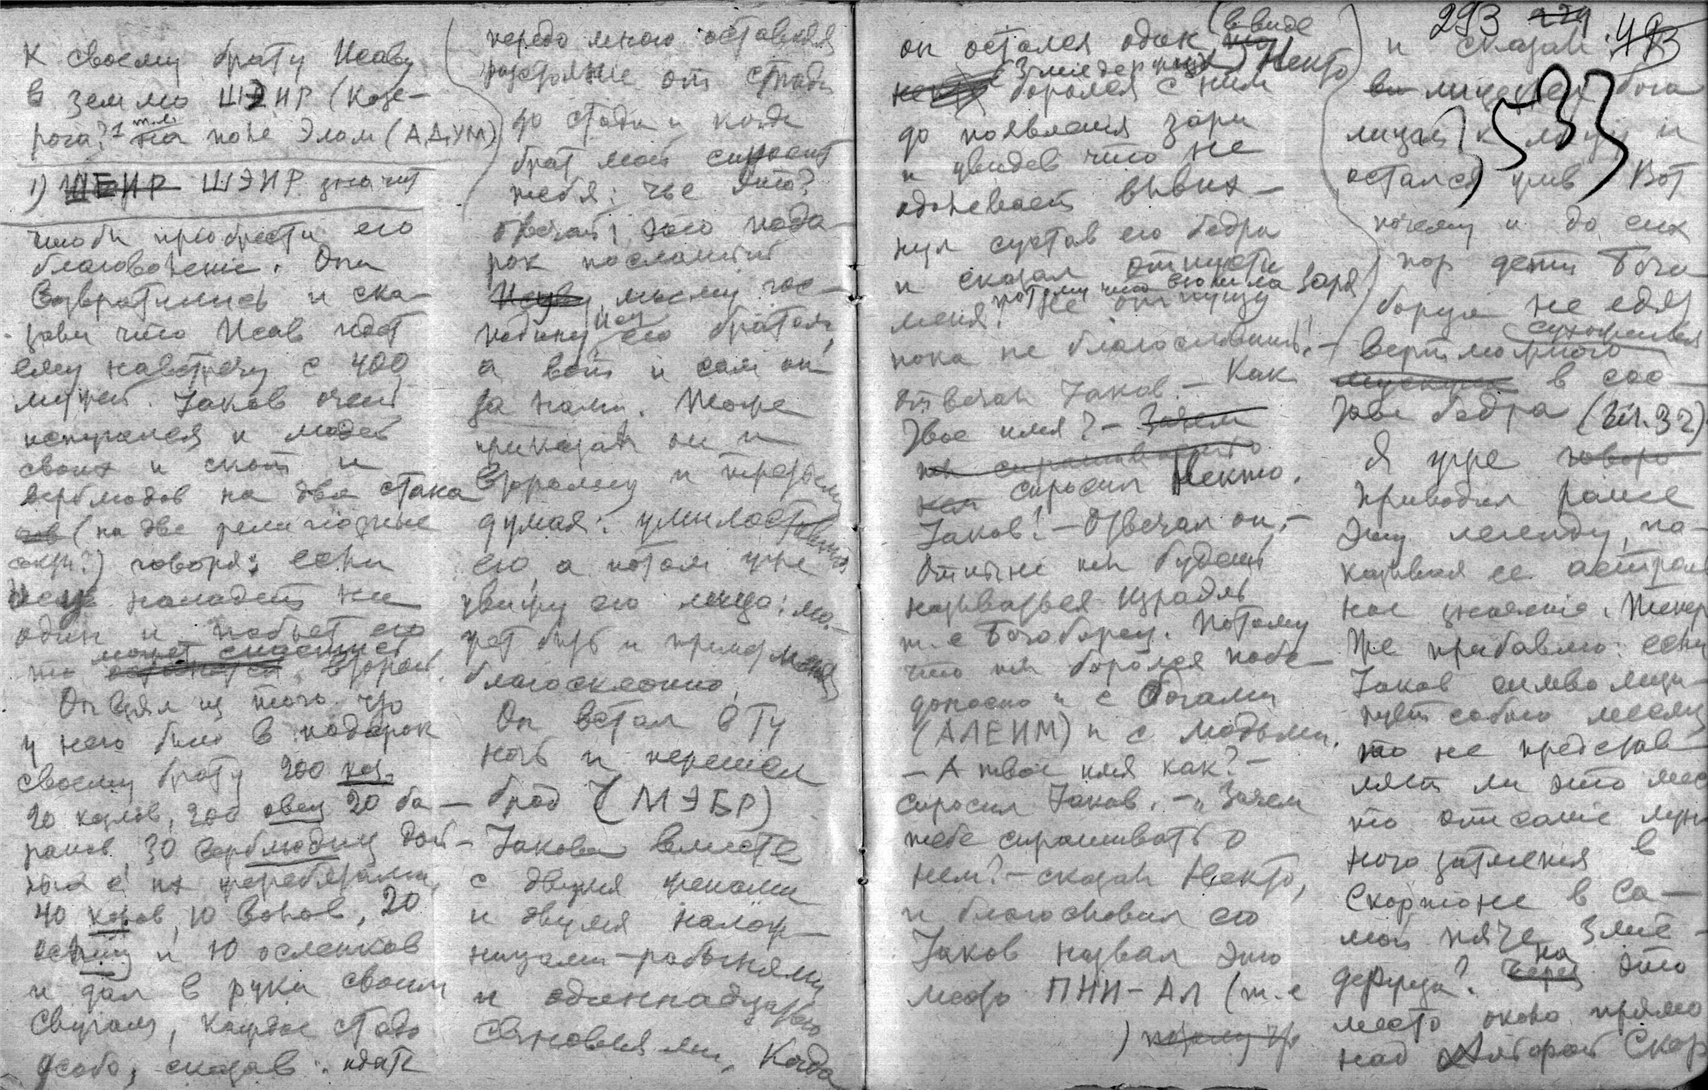 К своему брату Исаву
в землю ШЭИР (Козе-
рога?¹ т.е. на поле Элом (АДУМ)
1) ШЕИР ШЭИР значит
чтобы приобрести его
благоволение. Они
возвратились и ска-
зали что Исав идет
ему навстречу с 400
мужей. Иаков очень
испугался и людей
своих и скот и
верблюдов на два стана
(на две религиозные
секты?) говоря: если
Исав нападет на
один и побьет его
то может спастись второй.
Он взял из того что
у него было в подарок
своему брату 200 коз,
20 козлов, 200 овец 20 ба-
ранов, 30 верблюдиц дой-
ных с их жеребятами,
40 коров, 10 волов, 20
ослиц и 10 осленков
и дал в руки своим
слугам, каждое стадо
особо, сказав: идите
передо мною оставляя
расстояние от стада
до стада и когда
брат мой спросит
тебя: чье это?
Отвечай: это пода-
рок посланный
Исаву моему гос-
подину Исаву его братом,
а вот и сам он
за нами. Тоже
приказал он и
второму и третьему
думая: умилостивлю
его, а потом уже
увижу его лицо: мо-
жет быть и примет меня
благосклонно.
Он встал в ту
ночь и перешел
брод (МЭБР)
Иакова вместе
с двумя женами
и двумя налож-
ницами-рабынями
и одиннадцатью
сыновьями. Когда
293 279 493
533
он остался один (в виде
Змиедержца) Некто
боролся с ним
до появления зари
и увидев что не
одолевает вывих-
нул сустав его бедра
и сказал отпусти
меня! потому что взошла заря
Не отпущу
пока не благословишь! -
отвечал Иаков. - Как
твое имя? - Зачем
спрашивать
спросил Некто.
Иаков! - Отвечал он, -
Отныне ты будешь
называться Израэль
т.е Богоборец. Потому
что ты боролся побе-
доносно и с богами
(АЛЕИМ) и с людьми.
- А твое имя как? -
спросил Иаков. - "Зачем
тебе спрашивать о
нем? - сказал Некто,
и благословил его
Иаков назвал это
место ПНИ-АЛ (т.е
) потому что
и сказал:
я видел бога
лицом к лицу и
остался жив. Вот
почему и до сих
пор дети Бого-
борца не едят
сухожилья
вертлюжного
мускула в сос-
таве бедра (Быт. 32).
Я уже говоро
приводил ранее
эту легенду, по-
казывая ее астраль-
ное значение. Теперь
же прибавлю: если
Иаков символизи-
рует собою месяц
то не представ-
ляет ли это мес-
то описание лун-
ного затмения в
Скорпионе в са-
мой пяте Змие-
держца? на Через это
место около прямо
над Скор